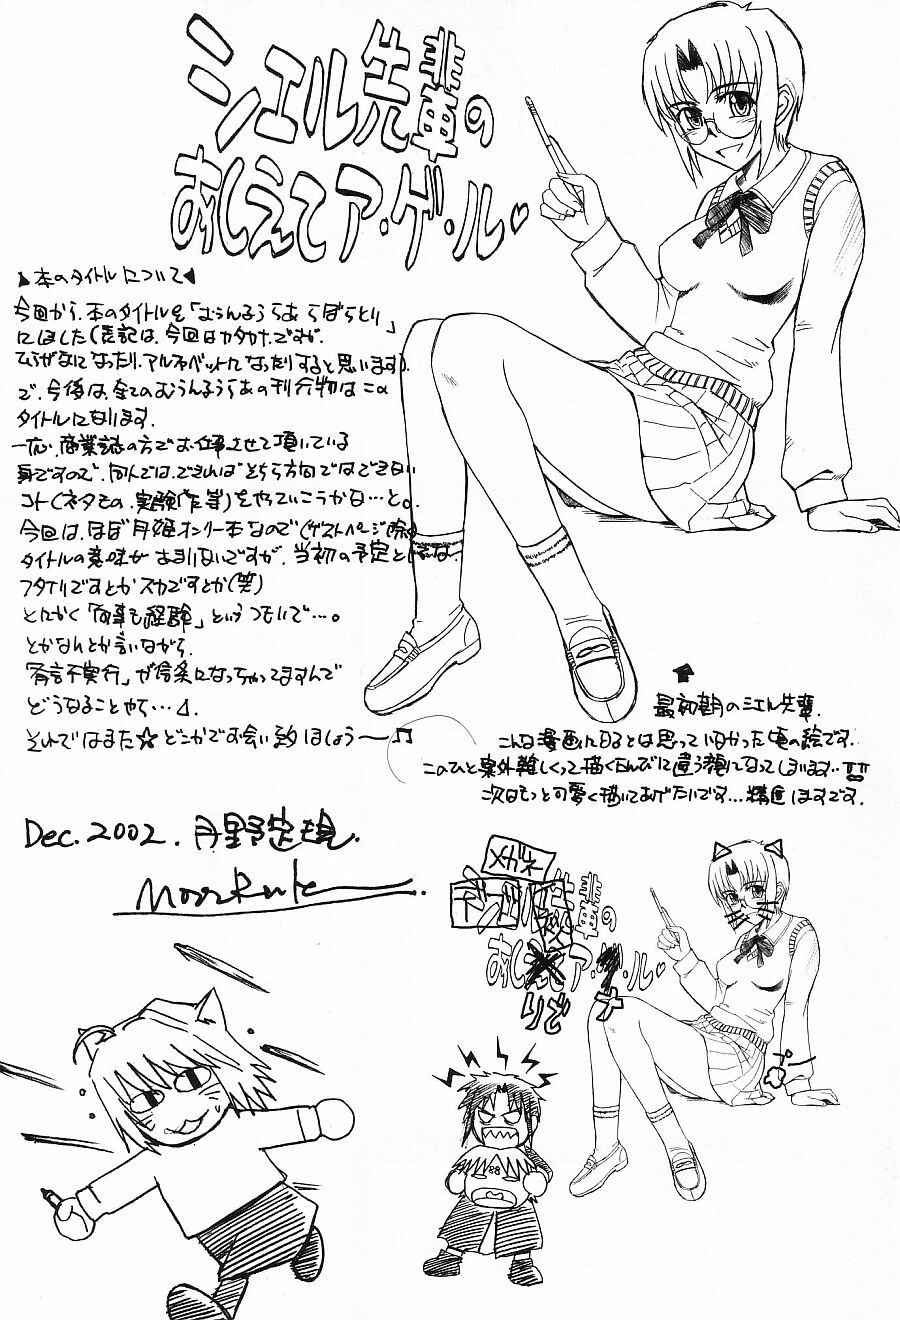 シエル先輩の
おしえてア・ゲ・ル♡
本のタイトルについて
今回から、本のタイトルを「むぅんるぅらぁ らぼらとり」
にしました(表記は、今回はカタカナですが、
ひらがなになったり、アルファベットになったりすると思います)。
で、今後は、全てのむぅんるぅらぁの刊行物はこの
タイトルになります。
一応、商業誌の方でお仕事させて頂いている
身ですので、同人では、できればそちら方向ではできない
コト(ネタとの、実験作等)をやっていこうかな…と。
今回は、ほぼ月姫オンリー本なので(ゲストページ除く)
タイトルの意味があまりないですが、当初の予定としては、
フタナリですとかスカですとか(笑)
とにかく「何事も経験」というつもりで…。
とかなんとか言いながら、
「有言不実行」が信条になっちゃってますんで
どうなることやら…⊿.
それではまた☆どこかでお会い致しましょう〜♫
最初期のシエル先輩.
こんな漫画になるとは思っていなかった頃の絵です.
このひと案外難しくって描くたんびに違う顔になってしまいます…!!
次はもっと可愛く描いてあげたいです…精進しますです.
Dec. 2002. 月野定規.
MoonRuler
メガネ
デコ
先輩の
おし
ア・
・ル♡
りぞ
ナ
プー
88